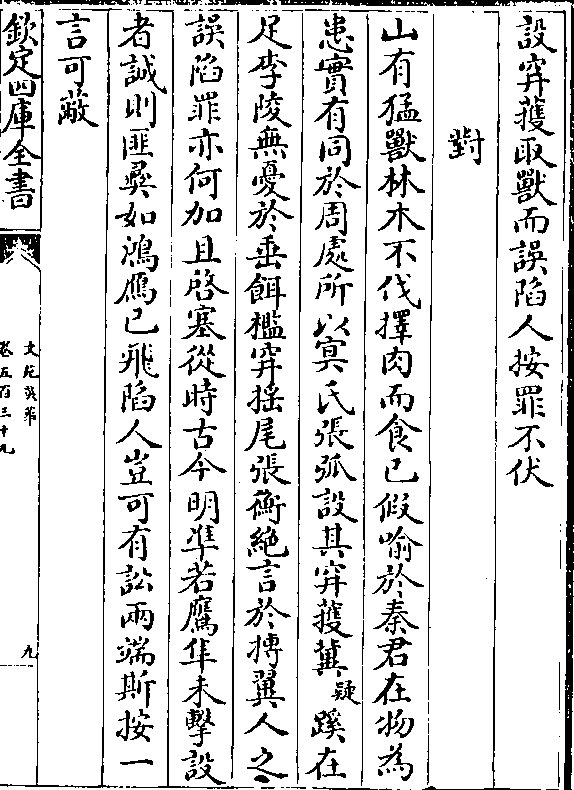 設穽擭取獸而誤陷人按罪不伏
對
山有猛獸林木不伐擇肉而食已假喻於秦君在物為
患實有同於周處所以冥氏張弧設其穽擭冀疑蹊在
足李陵無憂於垂餌檻穽揺尾張衡絶言於搏翼人之
誤陷罪亦何加且啓塞從時古今明凖若鷹隼未擊設
者誠則匪彛如鴻鴈已飛陷人豈可有訟兩端斯按一
言可蔽
欽定四庫全書
文苑英華
卷五百三十九
九